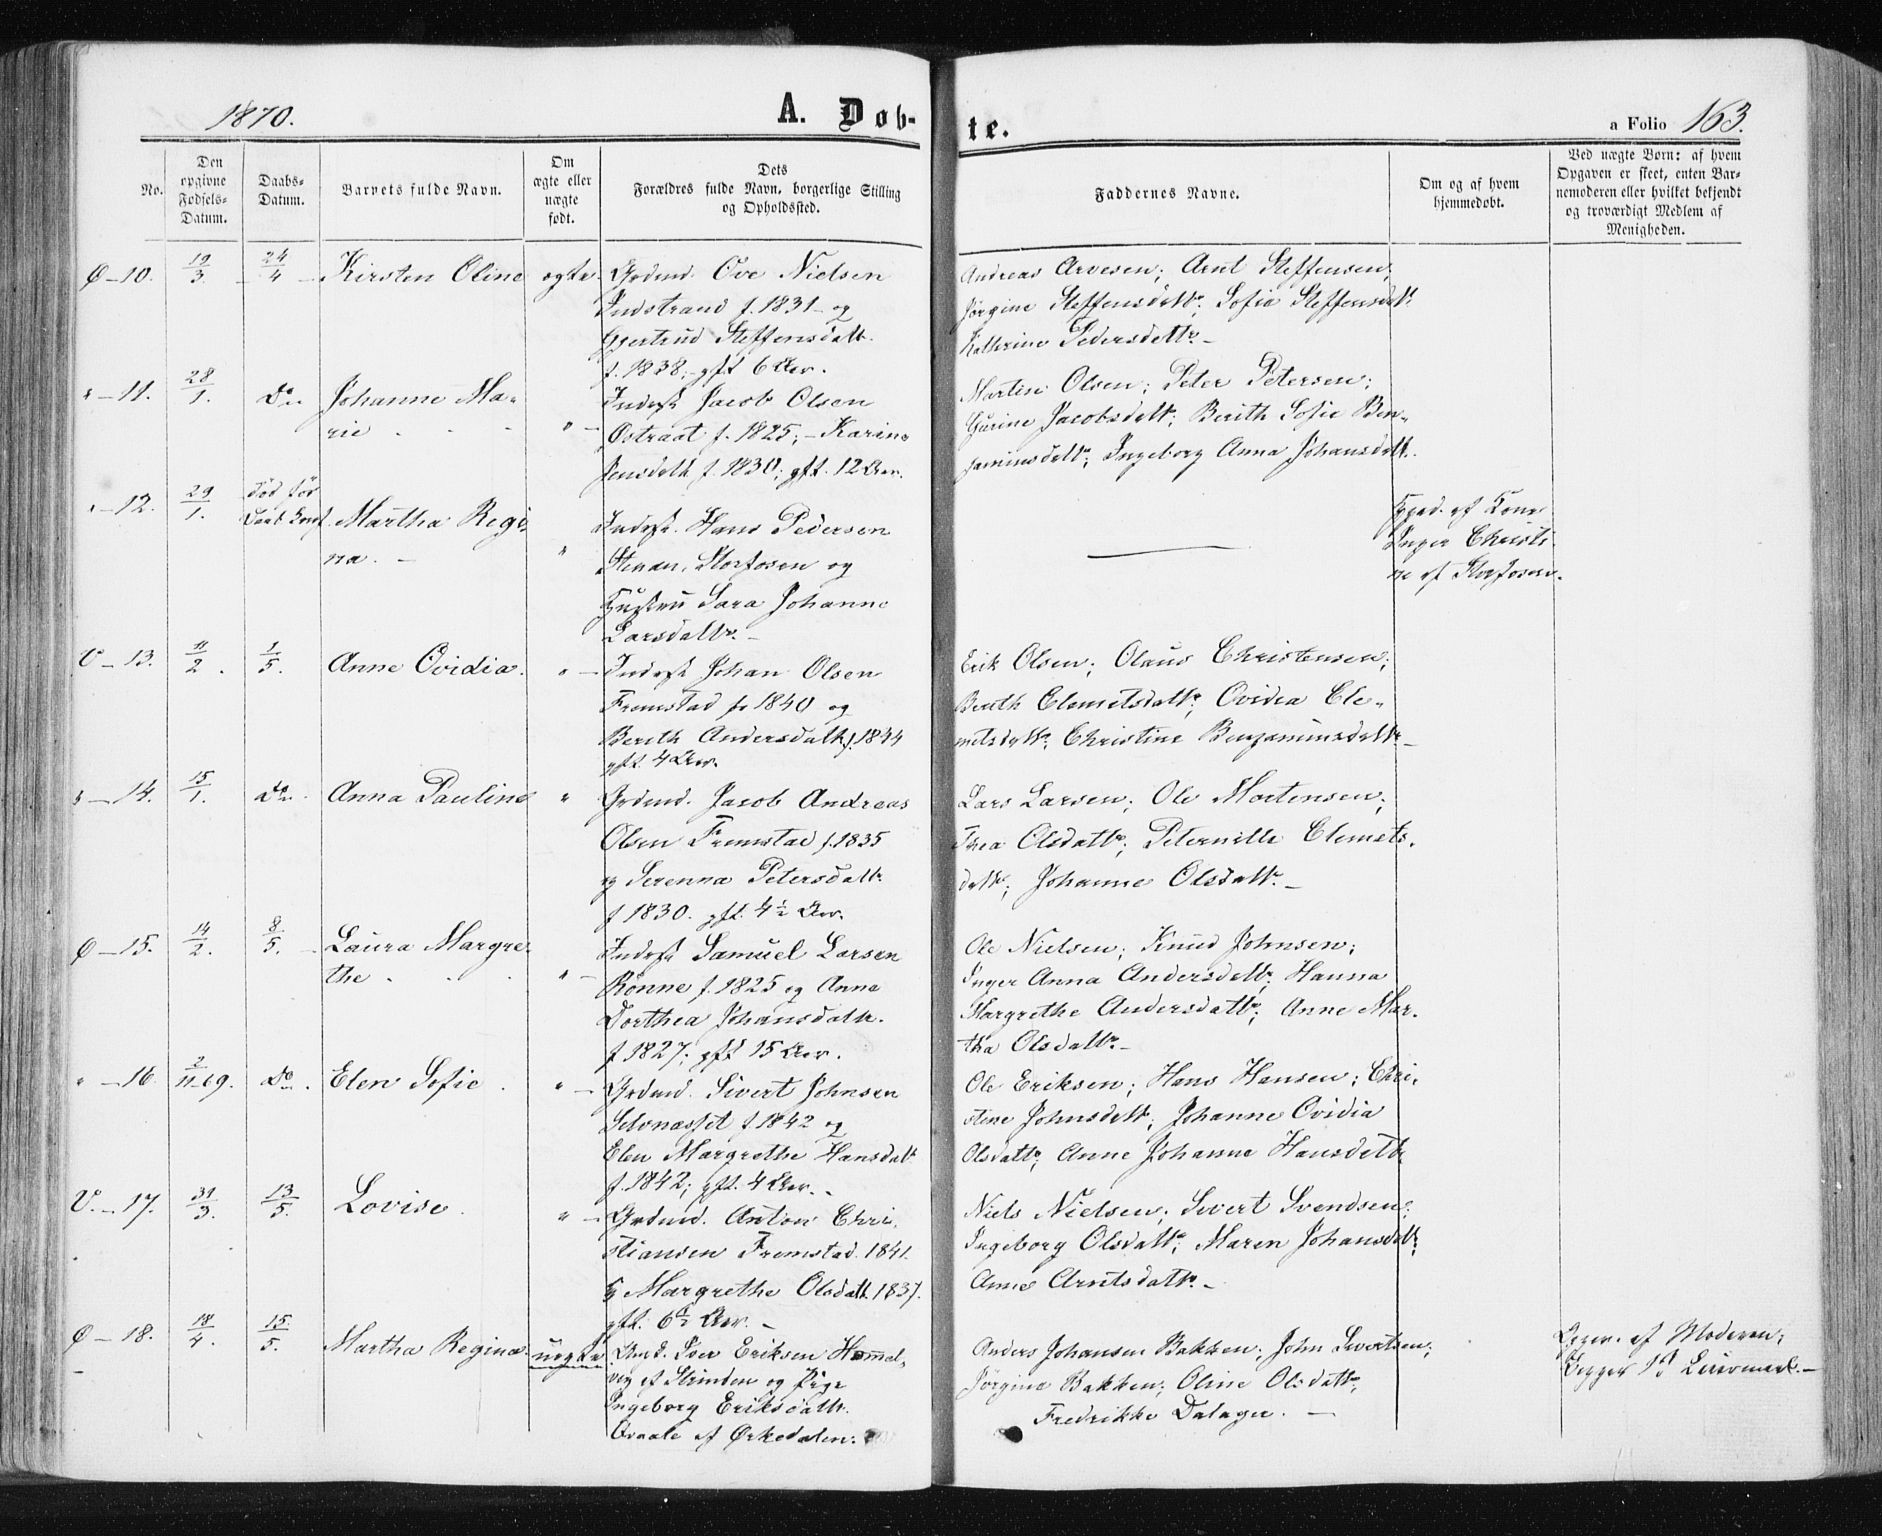 1870.
A. Døb-
te.
a Folio 163.
No.
Den opgivne Fødsels-Datum.
Daabs-Datum.
Barnets fulde Navn.
Om ægte eller uægte født.
Dets Forældres fulde Navn, borgerlige Stilling og Opholdssted.
Faddernes Navne.
Om og af hvem hjemmedøbt.
Ved uægte Børn: af hvem Opgaven er skeet, enten Barnemoderen eller hvilket bekjendt og troværdigt Medlem af Menigheden.
Ø – 10. 19/3. 24/4 Kirsten Oline ægte Grdmd. Ove Nielsen
Indstrand f. 1831 – og
Gjertrud Steffensdatt.
f. 1838; gft 6 Aar.
Andreas Arvesen; Arnt Steffensen;
Jørgine Steffensdatt; Sofia Steffensdatt
Kathrine Pedersdattr. –
" – 11. 28/1. Do. Johanne Ma-
rie " – Inderst Jacob Olsen
Østraat f. 1825; – Karine
Jensdatt f. 1830; gft. 12 Aar.
Martin Olsen; Peter Petersen;
Gurine Jacobsdatt; Berith Sofie Ben-
jaminsdatt; Ingeborg Anna Johansdatt.
" – 12. 29/1. Død før
Martha Regi-
na. – " Inderst. Hans Pedersen
Storfosen og
Hustru Sara Johanne
Larsdattr. –
Hjmd. af Kone
Inger Christi-
ne af Storfosen.
V – 13. 11/2. 1/5. Anne Ovidia. " – Inderst Johan Olsen
Fremstad f. 1840 og
Berith Andersdatt f. 1844
gft. 4 Aar.
Erik Olsen; Olaus Christensen;
Berith Elemetsdatt; Ovidia Ele-
metsdatt; Christine Benjaminsdattr –
" – 14. 15/1. Do. Anna Pauline " Grdmd. Jacob Andreas
Olsen Fremstad f. 1835
og Serenna Petersdatt.
f 1830. gft. 4½ Aar.
Lars Larsen; Ole Mortensen;
Thea Olsdattr; Peternille Elemets-
datt; Johanne Olsdatt. –
Ø – 15. 14/2. 8/5. Laura Margre-
the " – Inderst Samuel Larsen
Rønne f. 1825 og Anna
Dorthea Johansdatt.
f 1827; gft 15 Aar.
Ole Nielsen; Knud Johnsen;
Inger Anna Andersdattr; Hanna
Margrethe Andersdattr; Anne Mar-
tha Olsdattr. –
" – 16. 2/11-69. Do. Elen Sofie " – Grdmd. Sivert Johnsen
Selvnæsset f. 1842 og
Elen Margrethe Hansdatt
f. 1842; gft. 4 Aar. –
Ole Eriksen; Hans Hansen; Chri-
stine Johnsdatt; Johanne Ovidia
Olsdattr; Anne Johanne Hansdattr.
V. – 17. 31/3. 13/5. Lovise. " – Grdmd. Anton Chri-
stiansen Fremstad. 1841.
og Margrethe Olsdatt. 1837.
gft. 6½ Aar. –
Niels Nielsen; Sivert Svendsen;
Ingeborg Olsdatt; Maren Johansdatt;
Anne Arntsdattr. –
Ø – 18. 18/4. 15/5. Martha Regina uægte Ungk. Iver Eriksen Hommel-
vig af Strinden og Pige
Ingeborg Eriksdatt.
af Ørkedalen.
Anders Johansen Bakken; John Sivertsen;
Jørgine Bakken; Oline Olsdatt;
Fredrikke Dalager. –
Opgiv. af Moderen;
Begges 1st Leiermaal. –